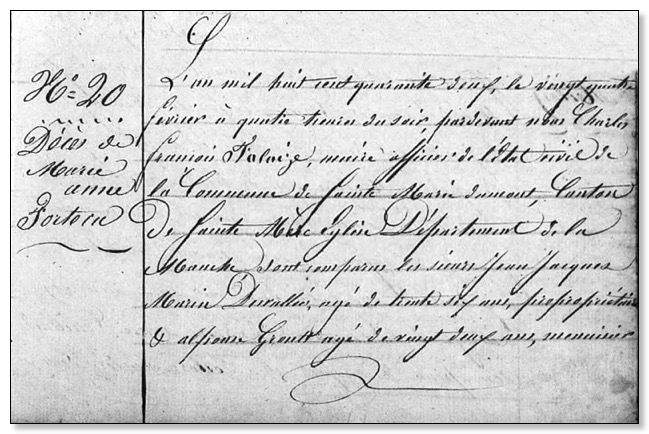 N.° 20
Décès de
Marie
anne
L'an mil huit cent quarante deux, le vingt quatre
février à quatre heures du soir, pardevant nous Charles
françois Falaize, maire officier de l'Etat civil de
la Commune de Sainte Marie dumont, Canton
De Sainte Mère Eglise Département de la
Manche sont comparus les sieurs Jean Jacques
Marin Duvallée, agé de trente six ans, propropriétaire
& alfonse Groult agé de vingt deux ans, menuisier